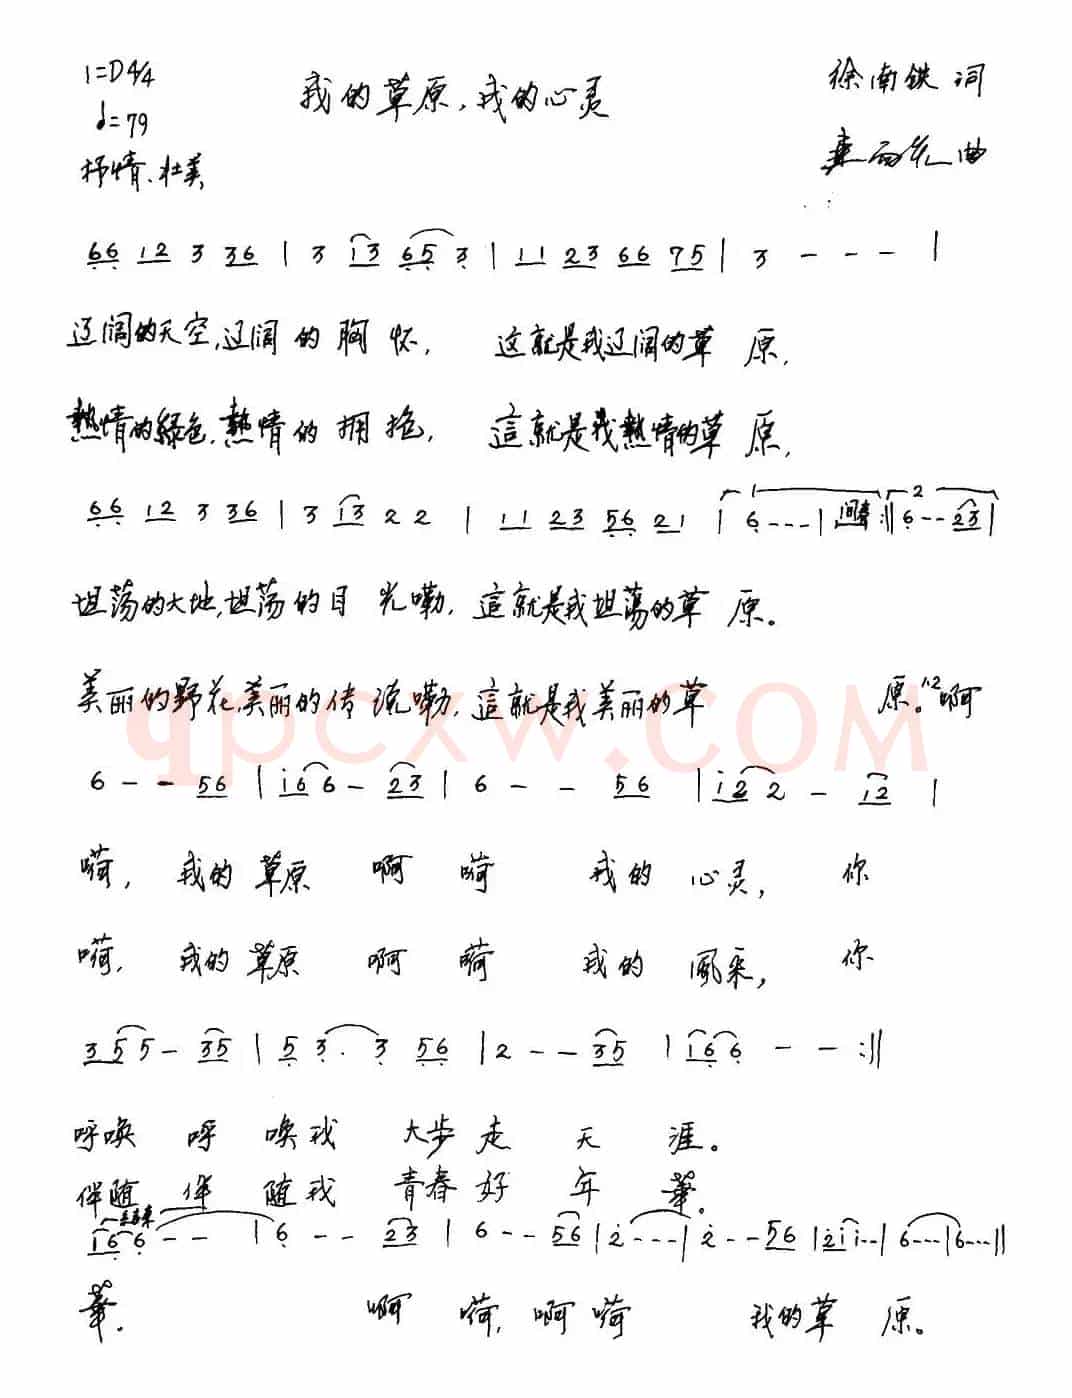 1=D4/4
我的草原,我的心灵
徐南铁 词
♩=79
抒情、壮美
曲
66 12 3 36 | 3 13 65 3 | 11 23 66 75 | 3 - - - |
辽阔的天空,辽阔的胸怀, 这就是我辽阔的草原,
熱情的绿色,熱情的拥抱, 這就是我熱情的草原,
1 2
66 12 3 36 | 3 13 2 2 | 11 23 56 21 | 6 - - - | 间奏 :|| 6 - - 23 |
坦荡的大地,坦荡的目光嘞, 這就是我坦荡的草原。
美丽的野花,美丽的传说嘞, 這就是我美丽的草原。1.2.啊
qpcxw.COM
6 - - 56 | i6 6 - 23 | 6 - - 56 | i2 2 - 12 |
嗬, 我的草原 啊嗬 我的心灵, 你
嗬, 我的草原 啊嗬 我的風采, 你
35 5 - 35 | 5 3. 3 56 | 2 - - 35 | 16 6 - - :||
呼唤 呼唤我 大步走天涯。
伴随 伴随我 青春好年華。
结束
16 6 - - | 6 - - 23 | 6 - - 56 | 2 - - - | 2 - - 56 | 2i i - - | 6 - - - | 6 - - - ||
華。 啊嗬,啊嗬 我的草原。